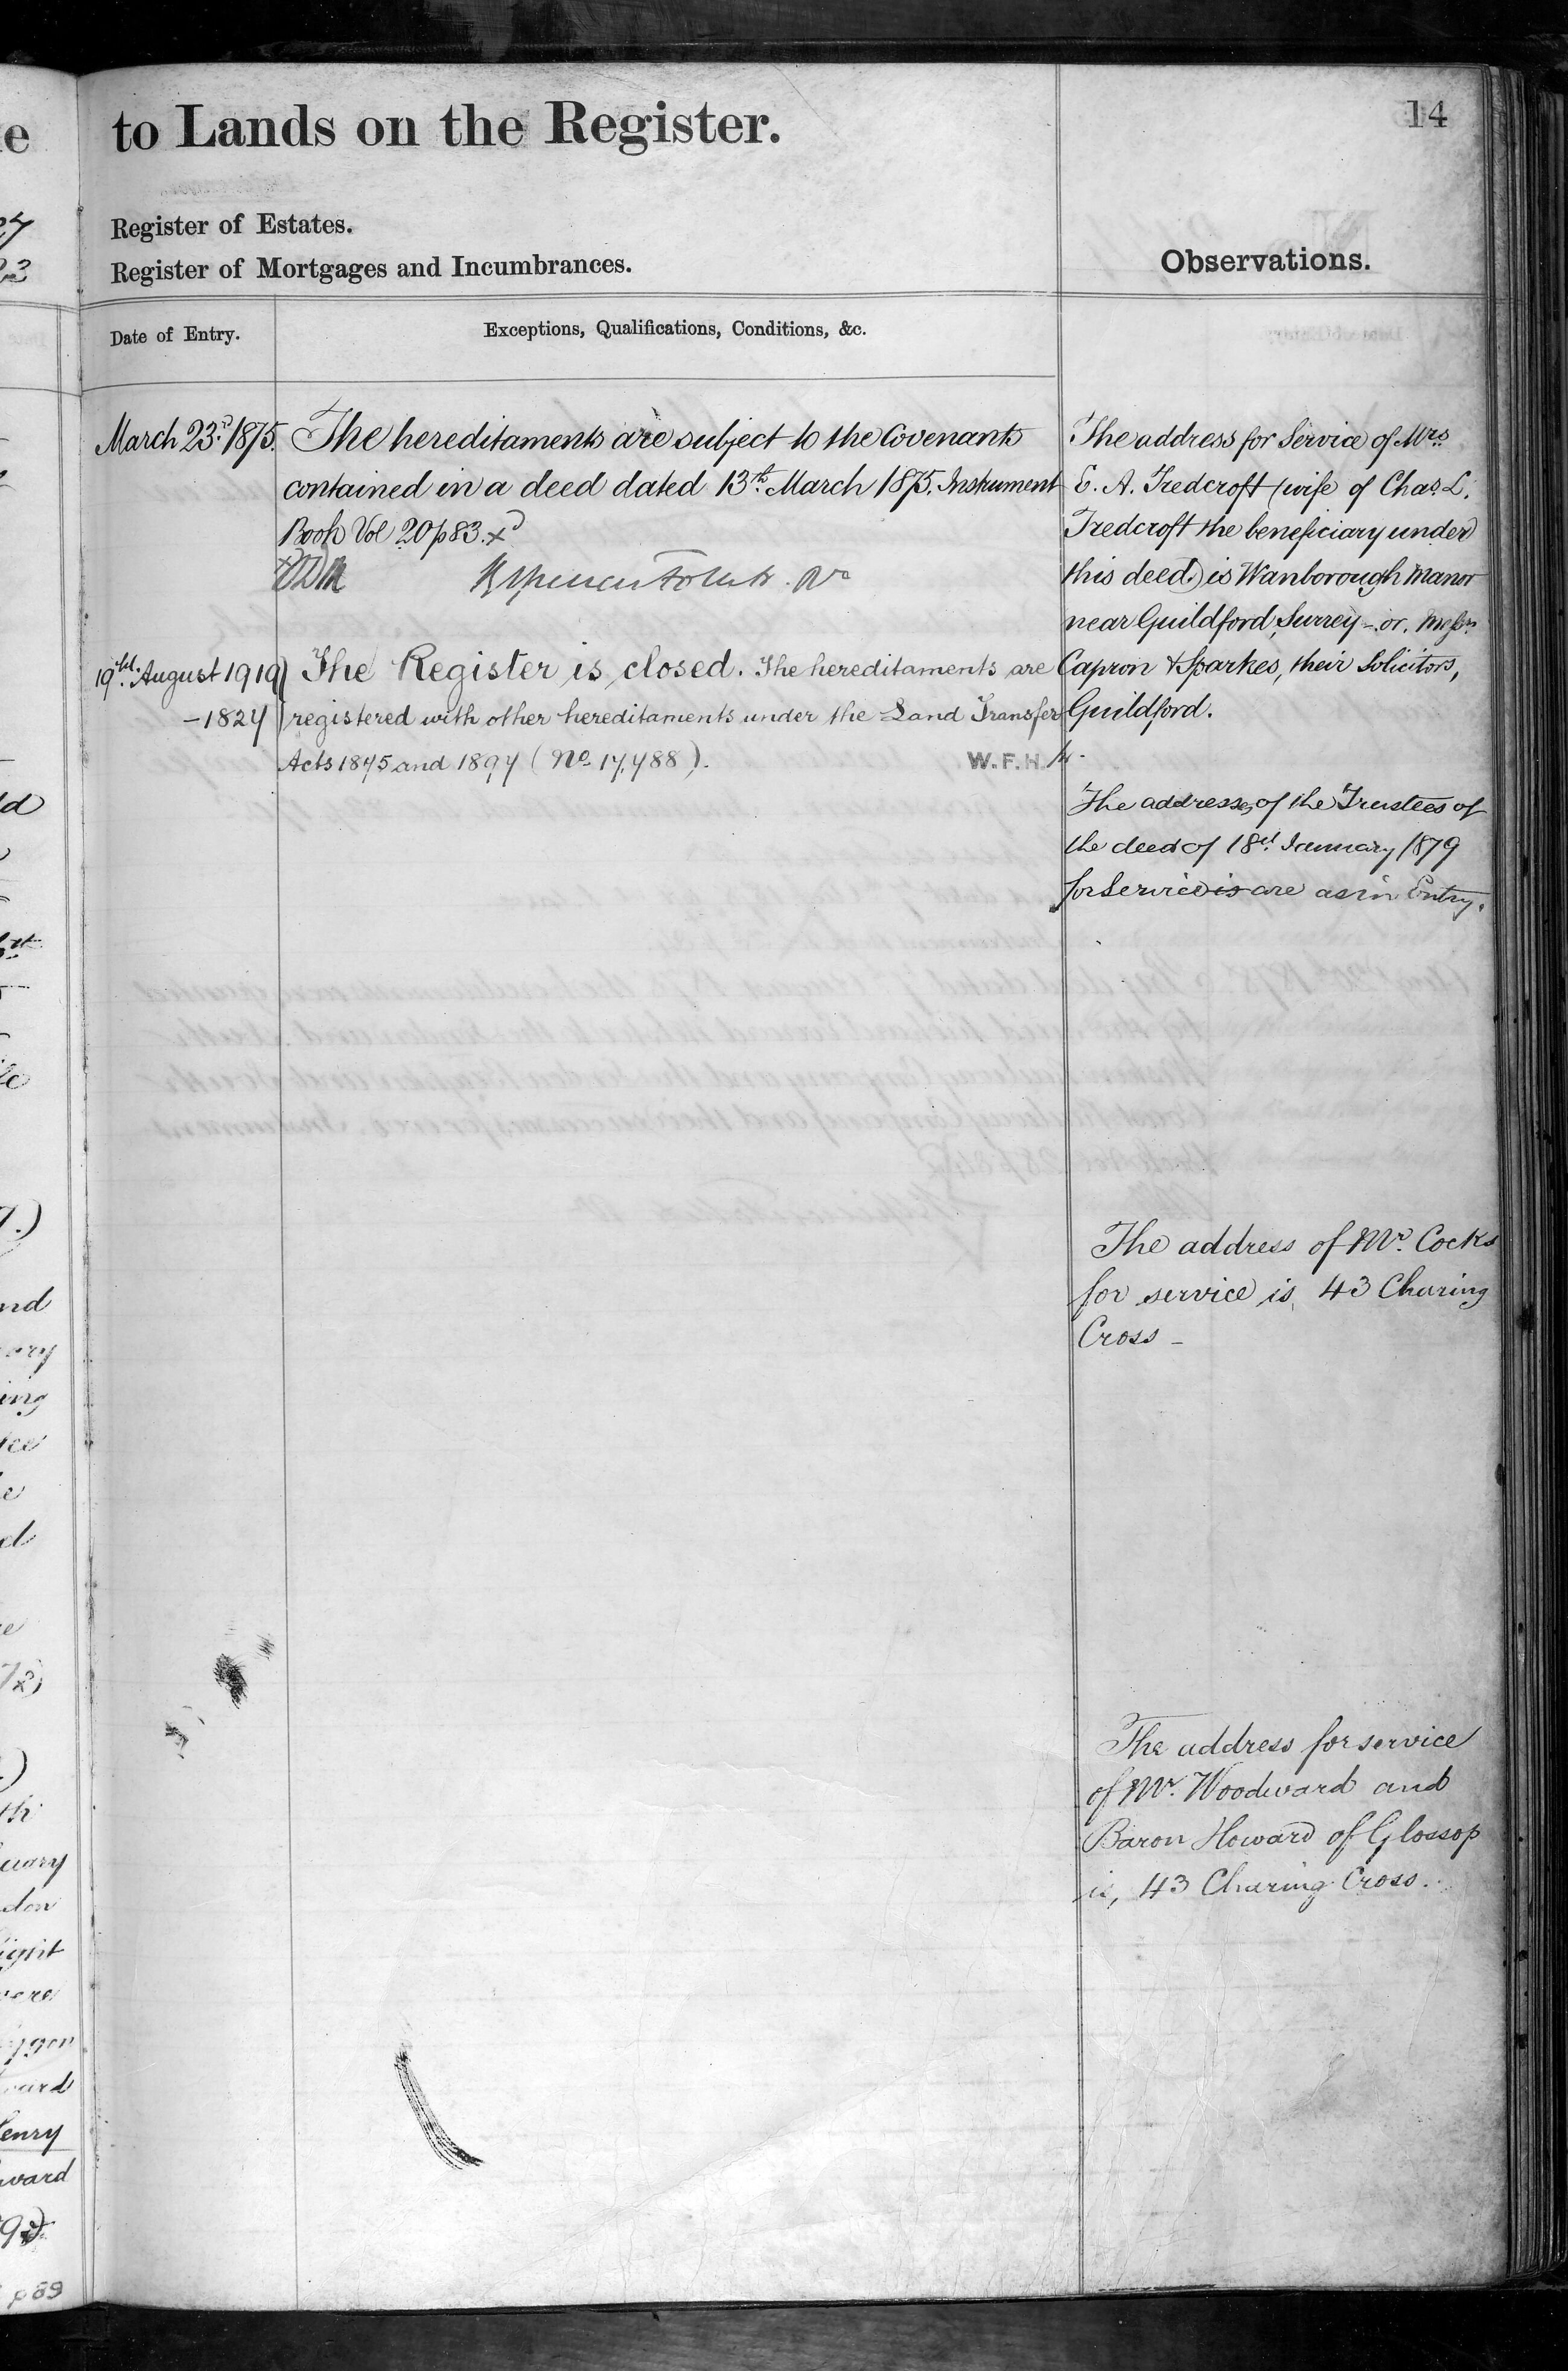 to Lands on the Register.
14
Register of Estates.
Register of Mortgages and Incumbrances.
Observations.
Date of Entry.
Exceptions, Qualifications, Conditions, &c.
March 23rd 1875.
The hereditaments are subject to the Covenants
contained in a deed dated 13th March 1875. Instrument
Book Vol 20 p 83.
19th August 1919
-1827
The Register is closed. The hereditaments are
registered with other hereditaments under the Land Transfer
Acts 1875 and 1897 (No. 17,788).
W.F.H.
The address for Service of Mrs.
E. A. Tredcroft (wife of Chas. L.
Tredcroft the beneficiary under
this deed) is Wanborough Manor
near Guildford, Surrey - or, Messrs.
Capron & Sparkes, their Solicitors,
Guildford.
The addresses of the Trustees of
the deed of 18th January 1879
for Service is are as in Entry.
The address of Mr. Cocks
for service is, 43 Charing
Cross -
The address for service
of Mr. Woodward and
Baron Howard of Glossop
is, 43 Charing Cross.